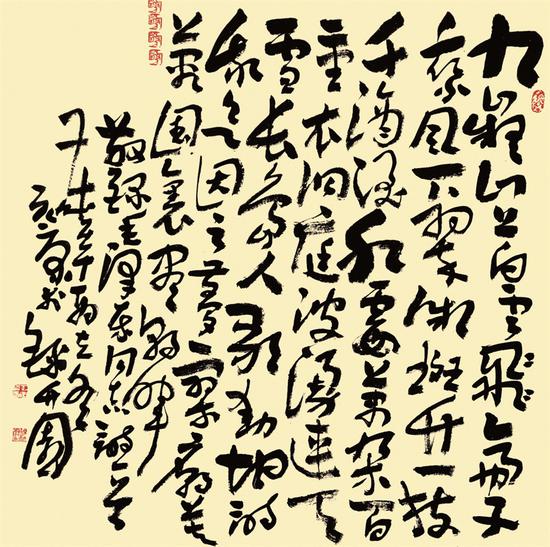 九嶷山上白雲飛帝子
乘風下翠微斑竹一枝
千滴淚紅霞萬朵百
重衣洞庭波涌連天
雪長島人歌動地詩
我欲因之夢寥廓芙
蓉國裏盡朝暉
敬錄毛澤東同志詩一首